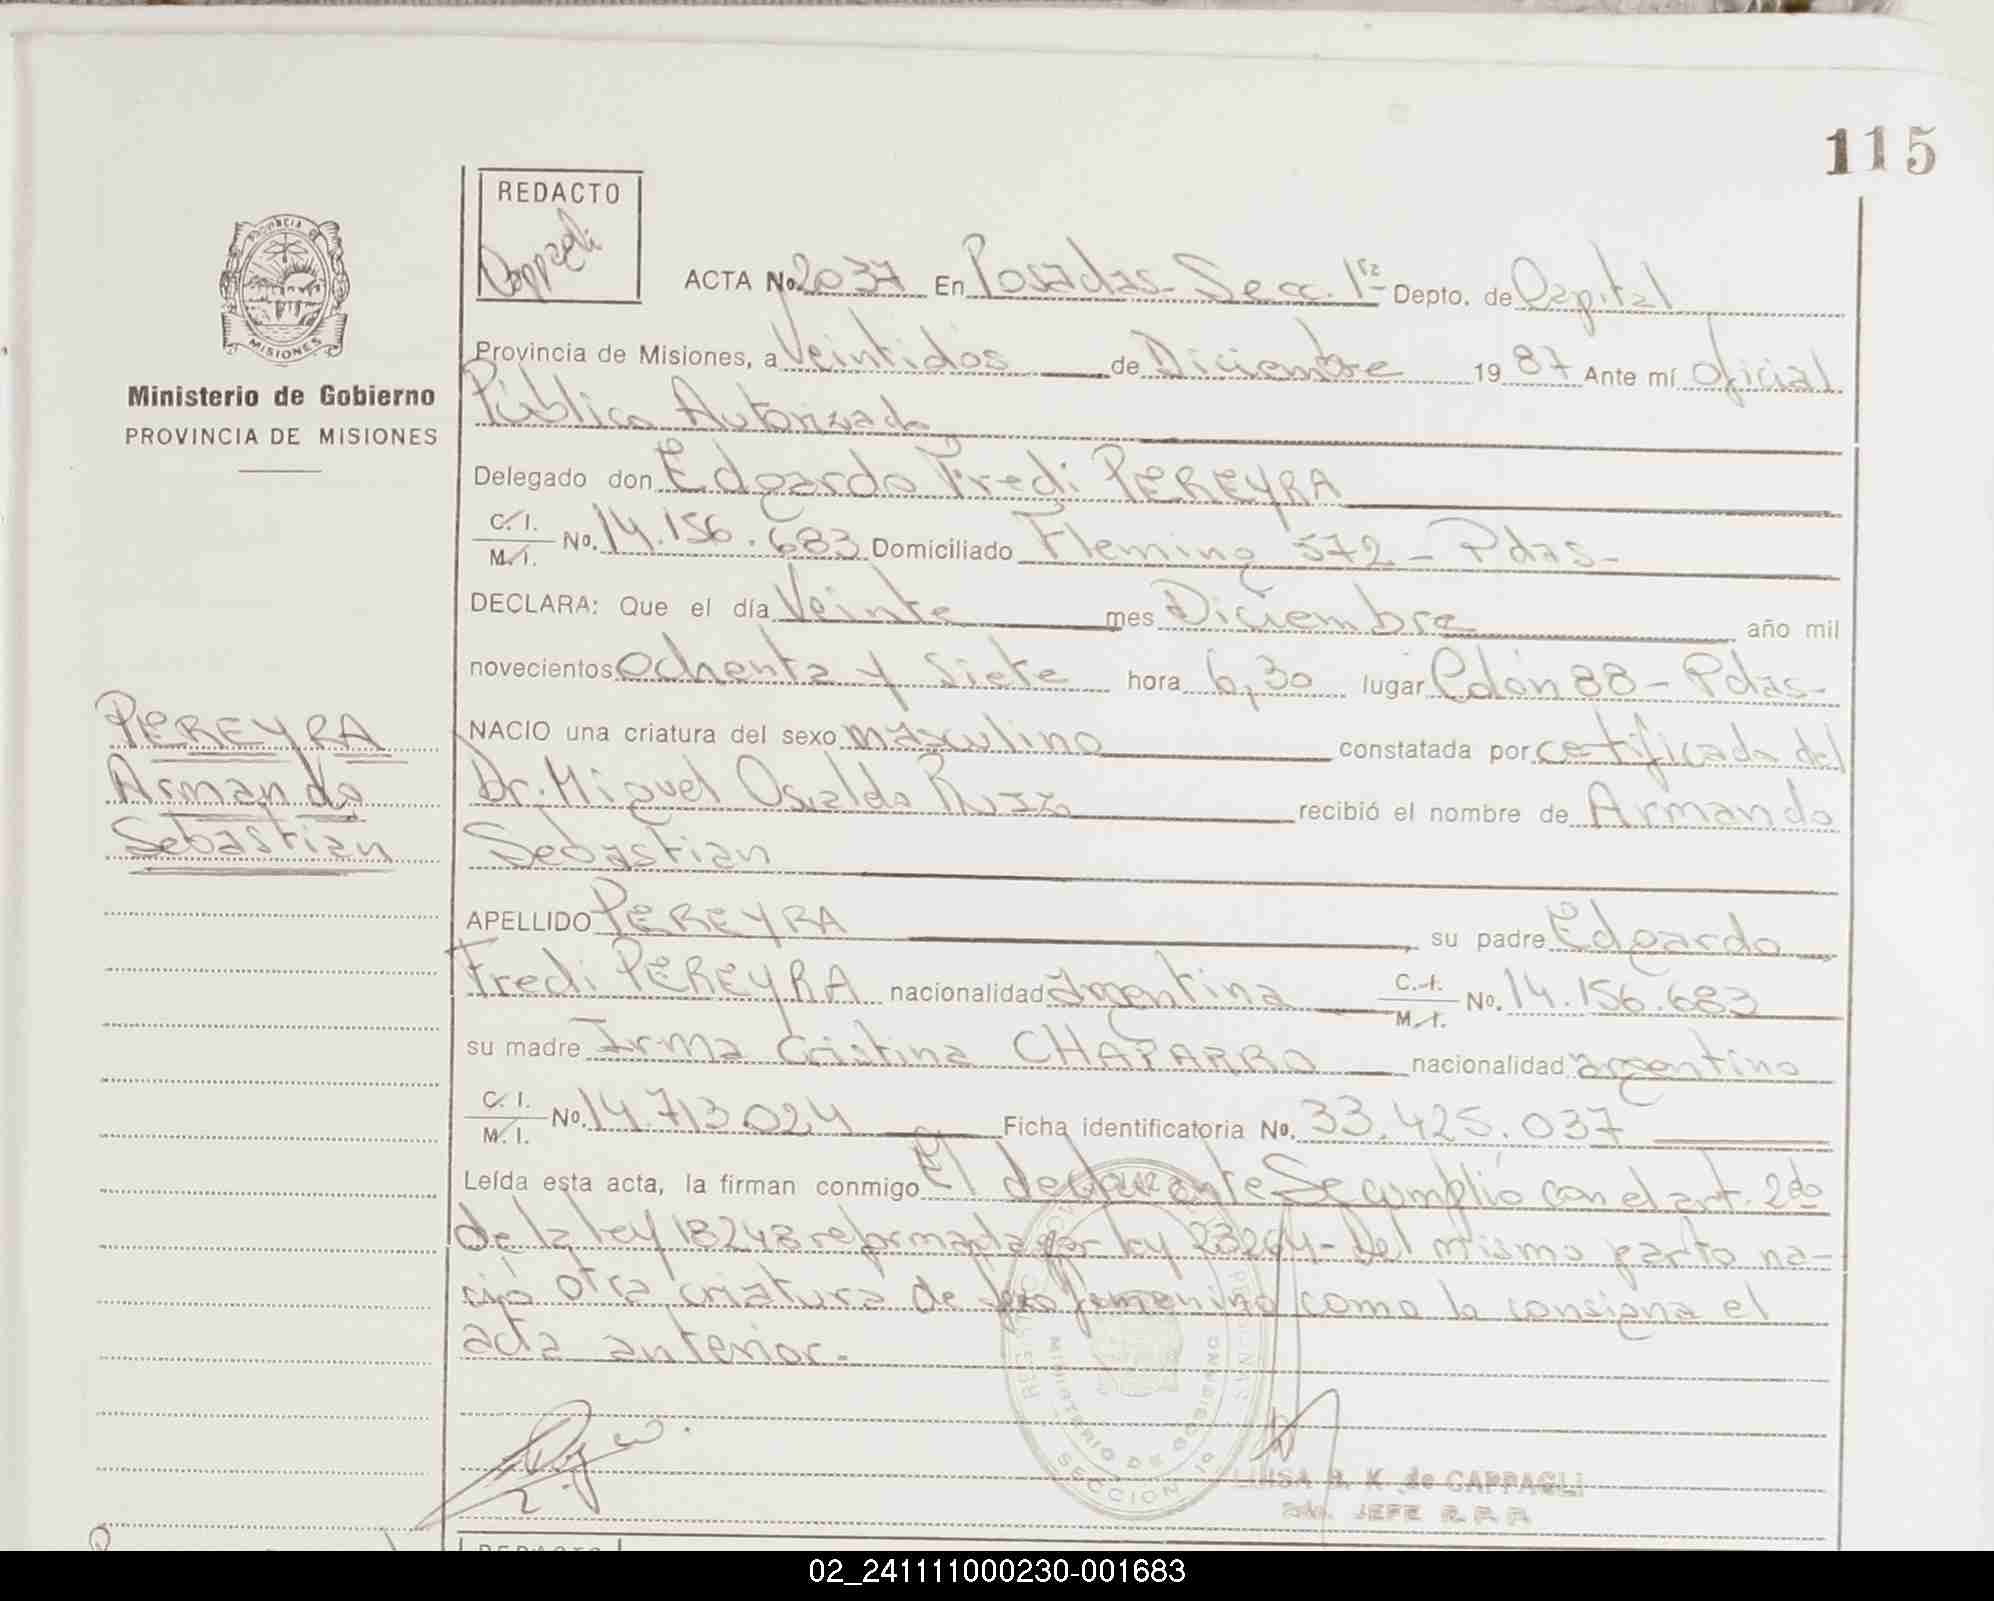 115
REDACTO
Cappagli
PROVINCIA DE
MISIONES
Ministerio de Gobierno
PROVINCIA DE MISIONES
ACTA No. 2037 En Posadas - Secc. 1ra Depto. de Capital
Provincia de Misiones, a Veintidos de Diciembre 1987 Ante mí Oficial
Público Autorizado
Delegado don Edgardo Fredi PEREYRA
C. I. / M. I. No. 14.156.683 Domiciliado Fleming 572 - Pdas -
DECLARA: Que el día Veinte mes Diciembre año mil
novecientos ochenta y siete hora 6,30 lugar Colón 88 - Pdas -
NACIO una criatura del sexo masculino constatada por certificado del
Dr. Miguel Osvaldo Ruzzo recibió el nombre de Armando
Sebastian
PEREYRA
Armando
Sebastian
APELLIDO PEREYRA su padre Edgardo
Fredi PEREYRA nacionalidad argentina C. I. / M. I. No. 14.156.683
su madre Irma Cristina CHAPARRO nacionalidad argentino
C. I. / M. I. No. 14.713.024 Ficha identificatoria No. 33.425.037
Leída esta acta, la firman conmigo El declarante Se cumplió con el art. 2do
de la ley 18248 reformada por ley 23264 - Del mismo parto na-
cio otra criatura de sexo femenino como la consigna el
acta anterior.-
MINISTERIO DE GOBIERNO
SECCION 1a
LUISA K. de CAPPAGLI
2do. JEFE R.P.P.
REDACTO
02_241111000230-001683